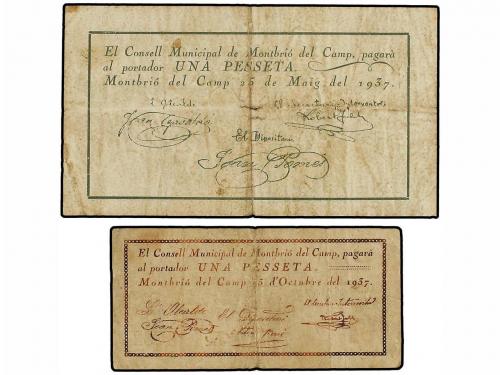 El Consell Municipal de Montbrió del Camp, pagarà
al portador UNA PESSETA.
Montbrió del Camp 25 de Maig del 1937.
El Dipositari
El Consell Municipal de Montbrió del Camp, pagarà
al portador UNA PESSETA.
Montbrió del Camp 15 d'Octubre del 1937.
L'Alcalde El Dipositari
Joan